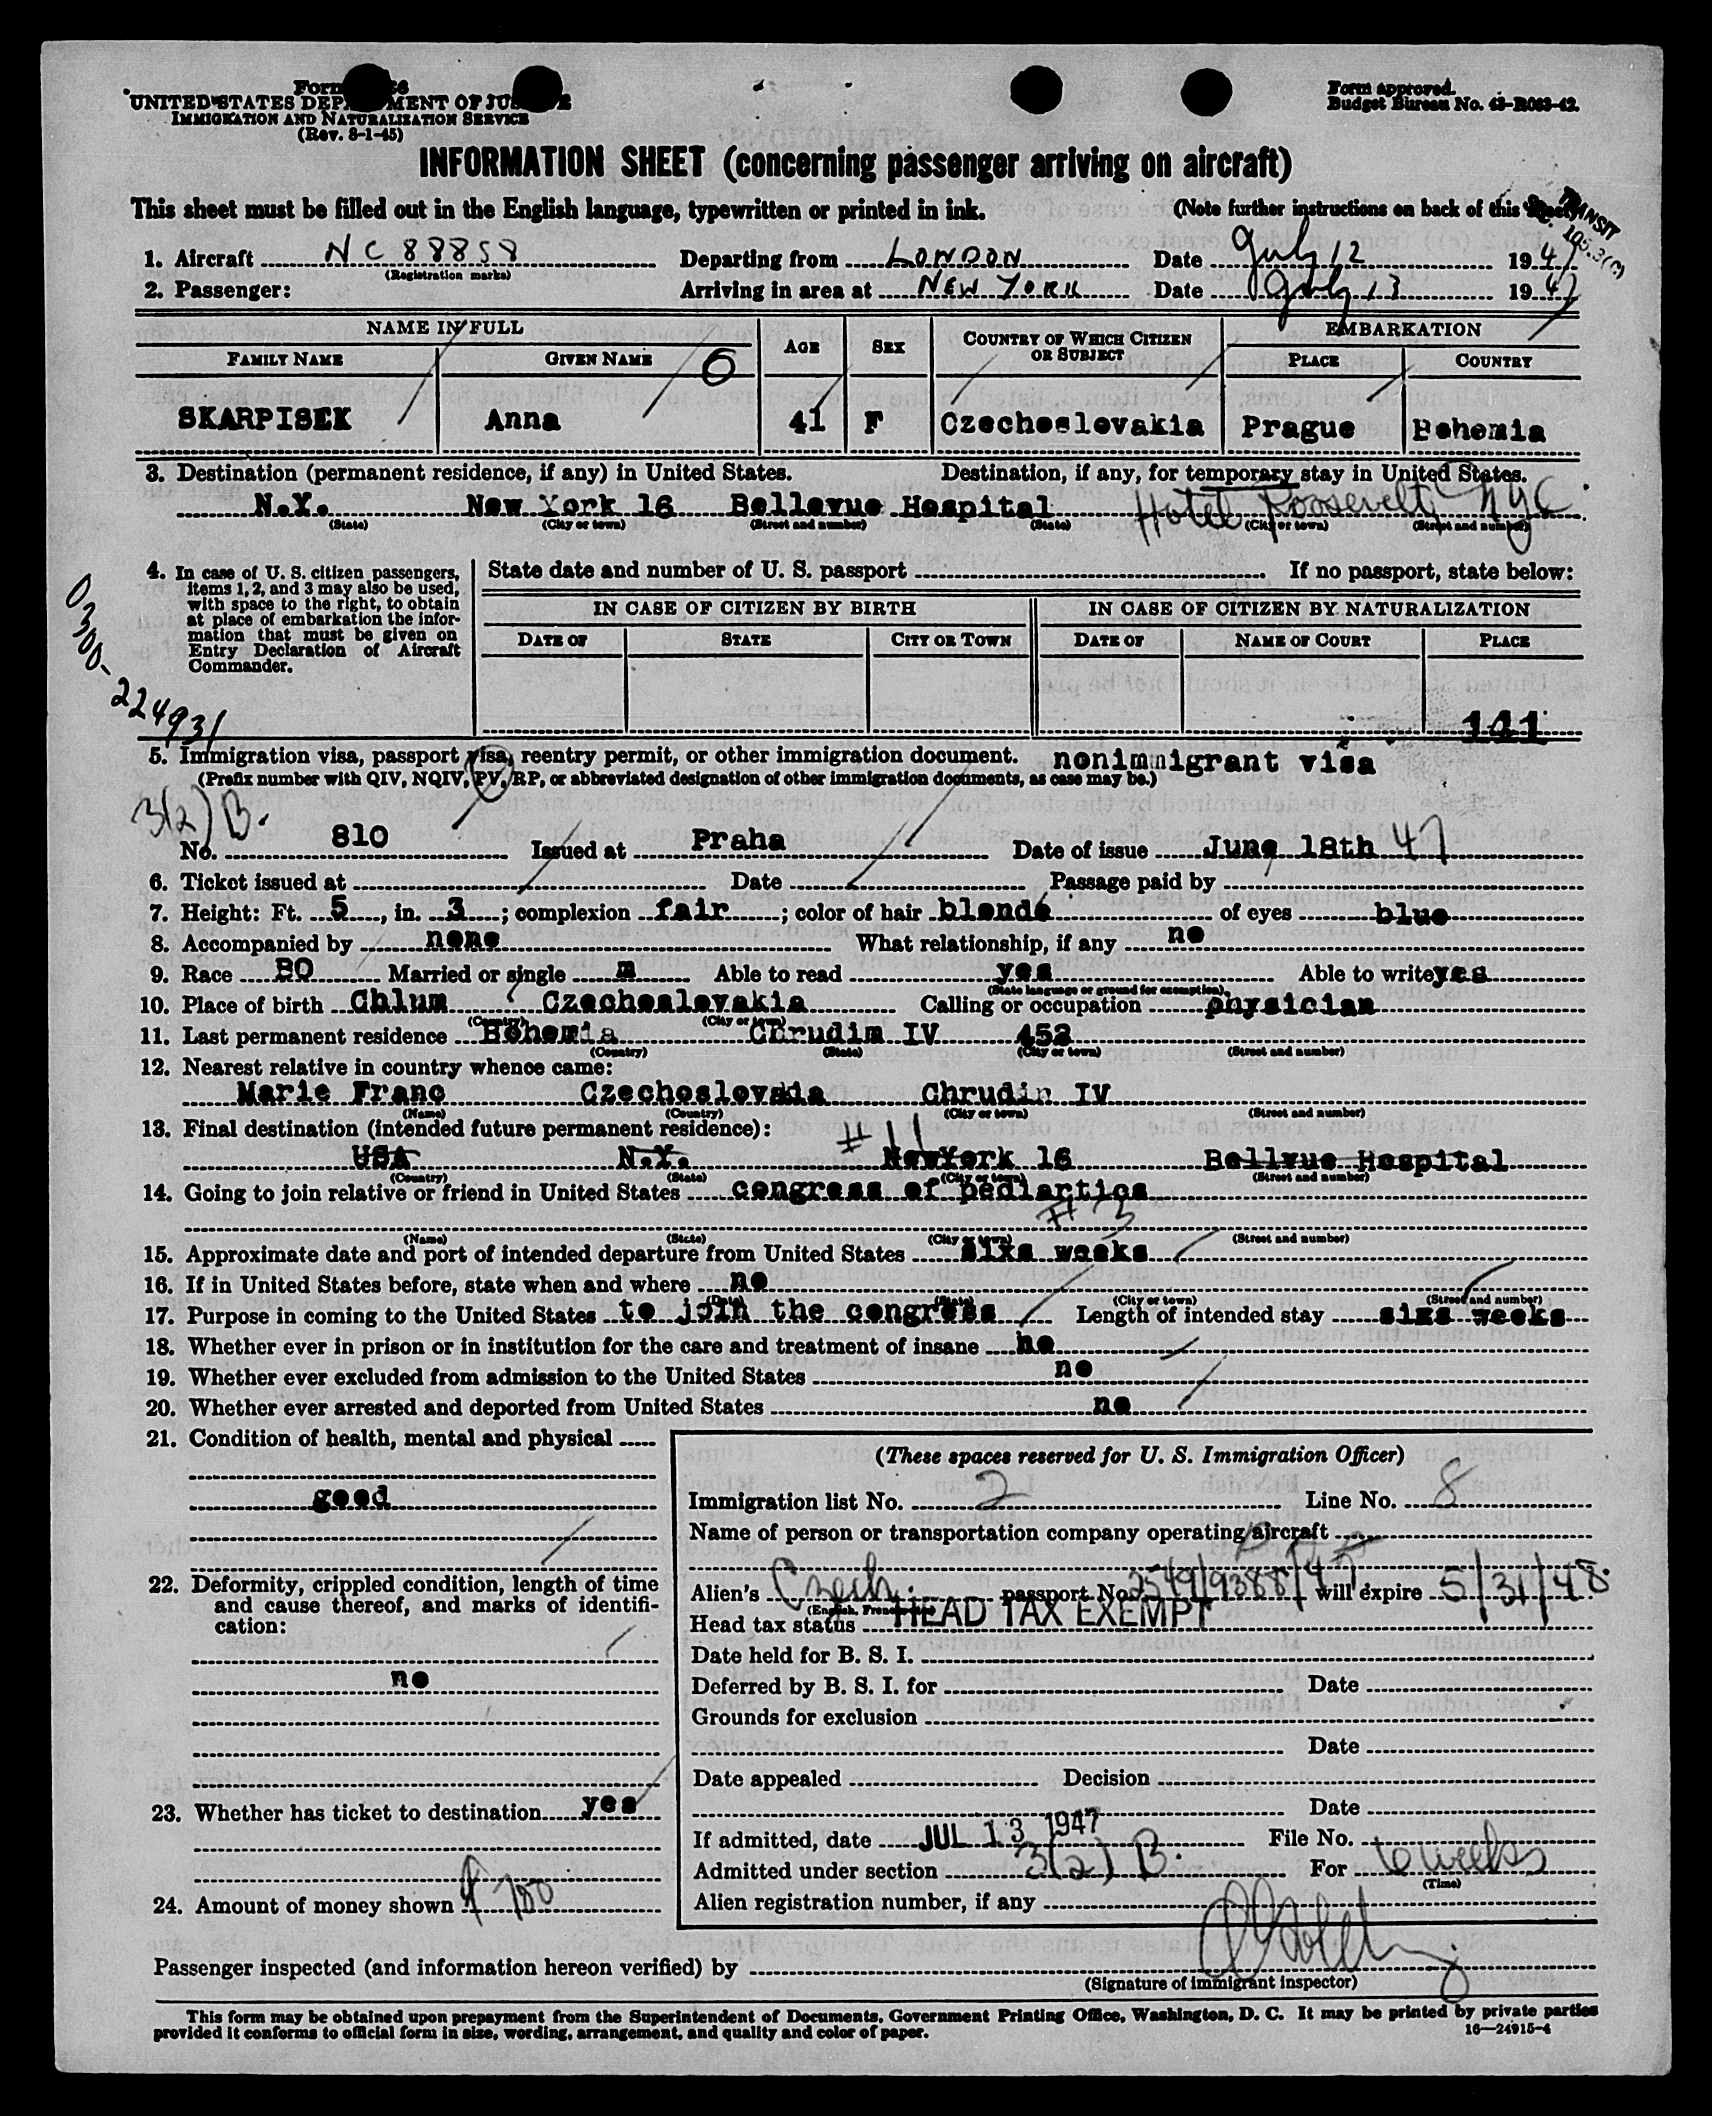 UNITED STATES DEP MENT OF JUS
IMMIGRATION AND NATURALIZATION SERVICE
(Rev. 8-1-45)
Form approved.
Budget Bureau No. 43-R063-42.
INFORMATION SHEET (concerning passenger arriving on aircraft)
This sheet must be filled out in the English language, typewritten or printed in ink. (Note further instructions on back of this sheet)
TRANSIT
1. Aircraft NC 88858 Departing from LONDON Date July 12 1947
(Registration marks)
2. Passenger: Arriving in area at NEW YORK Date July 13 1947
NAME IN FULL AGE SEX COUNTRY OF WHICH CITIZEN OR SUBJECT EMBARKATION
FAMILY NAME GIVEN NAME PLACE COUNTRY
SKARPISEK Anna 41 F Czechoslovakia Prague Bohemia
3. Destination (permanent residence, if any) in United States. Destination, if any, for temporary stay in United States.
N.Y. New York 16 Bellevue Hospital Hotel Roosevelt NYC
(State) (City or town) (Street and number) (State) (City or town) (Street and number)
4. In case of U. S. citizen passengers, items 1, 2, and 3 may also be used, with space to the right, to obtain at place of embarkation the information that must be given on Entry Declaration of Aircraft Commander.
State date and number of U. S. passport . If no passport, state below:
IN CASE OF CITIZEN BY BIRTH IN CASE OF CITIZEN BY NATURALIZATION
DATE OF STATE CITY OR TOWN DATE OF NAME OF COURT PLACE
0300-224931
141
5. Immigration visa, passport visa, reentry permit, or other immigration document. nonimmigrant visa
(Prefix number with QIV, NQIV, PV, RP, or abbreviated designation of other immigration documents, as case may be.)
3(2) B.
No. 810 Issued at Praha Date of issue June 18th 47
6. Ticket issued at Date Passage paid by
7. Height: Ft. 5, in. 3; complexion fair; color of hair blonde of eyes blue
8. Accompanied by none What relationship, if any no
9. Race BO Married or single m Able to read yes Able to write yes
(State language or ground for exemption)
10. Place of birth Chlum Czechoslovakia Calling or occupation physician
(Country) (City or town)
11. Last permanent residence Bohemia Chrudim IV 452
(Country) (State) (City or town) (Street and number)
12. Nearest relative in country whence came:
Marie Franc Czechoslovakia Chrudim IV
(Name) (Country) (City or town) (Street and number)
13. Final destination (intended future permanent residence): #11
USA N.Y. NewYork 16 Bellvue Hospital
(Country) (State) (City or town) (Street and number)
14. Going to join relative or friend in United States congress of pediartics
#3
(Name) (State) (City or town) (Street and number)
15. Approximate date and port of intended departure from United States sixs weeks
16. If in United States before, state when and where no
(Date) (State) (City or town) (Street and number)
17. Purpose in coming to the United States to join the congress Length of intended stay sixs weeks
18. Whether ever in prison or in institution for the care and treatment of insane no
19. Whether ever excluded from admission to the United States no
20. Whether ever arrested and deported from United States no
21. Condition of health, mental and physical
good
22. Deformity, crippled condition, length of time and cause thereof, and marks of identification:
no
23. Whether has ticket to destination yes
24. Amount of money shown $
(These spaces reserved for U. S. Immigration Officer)
Immigration list No. 2 Line No. 8
Name of person or transportation company operating aircraft
Alien's Czech. passport No. 2549/9388/47 will expire 5/31/48.
Head tax status HEAD TAX EXEMPT
Date held for B. S. I.
Deferred by B. S. I. for Date
Grounds for exclusion
Date
Date appealed Decision
Date
If admitted, date JUL 13 1947 File No.
Admitted under section 3(2) B. For 6 weeks
(Time)
Alien registration number, if any
Passenger inspected (and information hereon verified) by
(Signature of immigrant inspector)
This form may be obtained upon prepayment from the Superintendent of Documents, Government Printing Office, Washington, D. C. It may be printed by private parties
provided it conforms to official form in size, wording, arrangement, and quality and color of paper.
16—24915-4